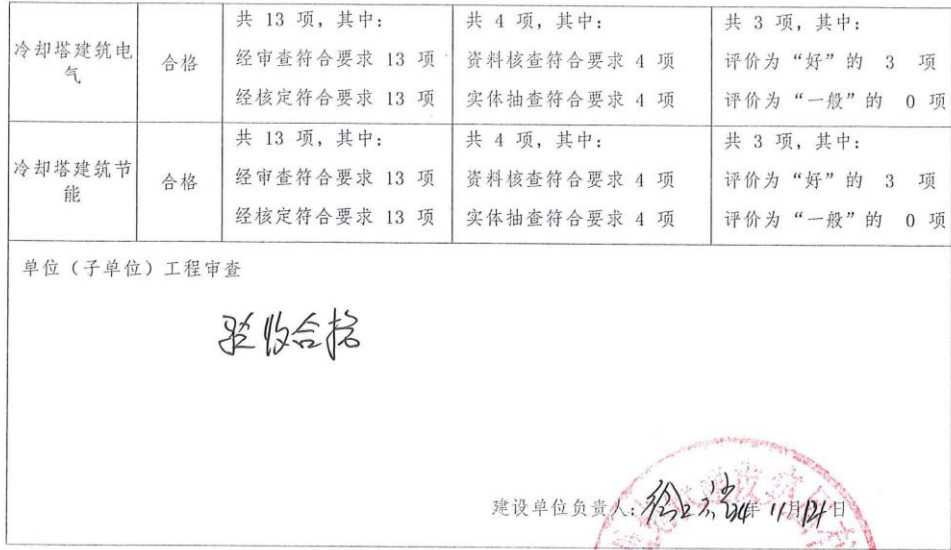 冷却塔建筑电气
合格
共 13 项，其中：
经审查符合要求 13 项
经核定符合要求 13 项
共 4 项，其中：
资料核查符合要求 4 项
实体抽查符合要求 4 项
共 3 项，其中：
评价为“好”的 3 项
评价为“一般”的 0 项
冷却塔建筑节能
合格
共 13 项，其中：
经审查符合要求 13 项
经核定符合要求 13 项
共 4 项，其中：
资料核查符合要求 4 项
实体抽查符合要求 4 项
共 3 项，其中：
评价为“好”的 3 项
评价为“一般”的 0 项
单位（子单位）工程审查
验收合格
建设单位负责人： 年 11月 日